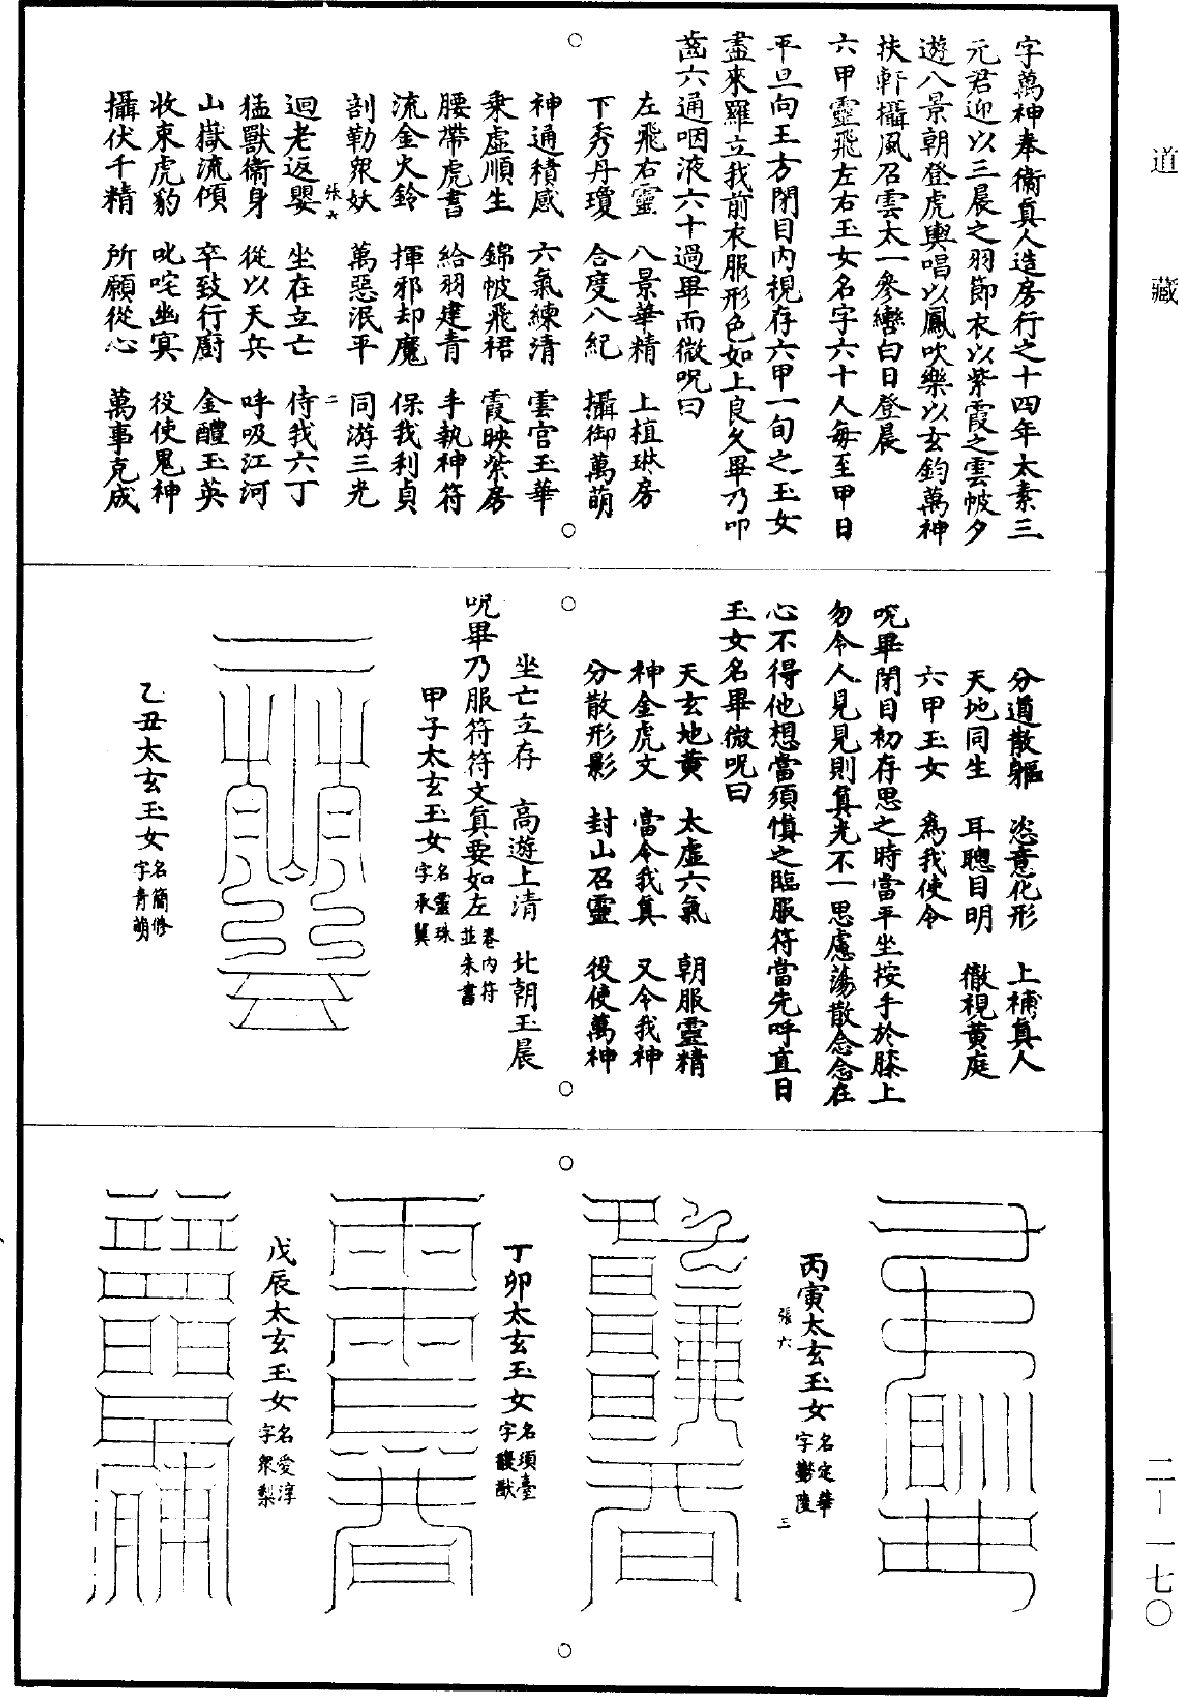 道藏
字萬神奉衛真人造房行之十四年太素三
元君迎以三晨之羽節衣以紫霞之雲帔夕
遊八景朝登虎輿唱以鳳吹樂以玄鈞萬神
扶軒攝風召雲太一參轡白日登晨
六甲靈飛左右玉女名字六十人每至甲日
平旦向王方閉目內視存六甲一旬之玉女
盡來羅立我前衣服形色如上良久畢乃叩
齒六通咽液六十過畢而微呪曰
左飛右靈　八景華精　上植琳房
下秀丹瓊　合度八紀　攝御萬萌
神通積感　六氣練清　雲官玉華
乘虛順生　錦帔飛裙　霞映紫房
腰帶虎書　給羽建青　手執神符
流金火鈴　揮邪却魔　保我利貞
張六　二
剖勒衆妖　萬惡泯平　同游三光
迴老返嬰　坐在立亡　侍我六丁
猛獸衛身　從以天兵　呼吸江河
山嶽流傾　卒致行廚　金醴玉英
收束虎豹　叱咤幽冥　役使鬼神
攝伏千精　所願從心　萬事克成
分遁散軀　恣意化形　上補真人
天地同生　耳聰目明　徹視黄庭
六甲玉女　為我使令
呪畢閉目初存思之時當平坐按手於膝上
勿令人見見則真光不一思慮蕩散念念在
心不得他想當須慎之臨服符當先呼直日
玉女名畢微呪曰
天玄地黄　太虛六氣　朝服靈精
神金虎文　當令我真　又令我神
分散形影　封山召靈　役使萬神
坐亡立存　高遊上清　北朝玉晨
呪畢乃服符符文真要如左卷内符並朱書
甲子太玄玉女名靈珠字承翼
乙丑太玄玉女名簡修字青萌
丙寅太玄玉女名定華字鬱陵
張六　三
丁卯太玄玉女名須臺字馥猷
戊辰太玄玉女名愛淳字衆梨
二—一七〇